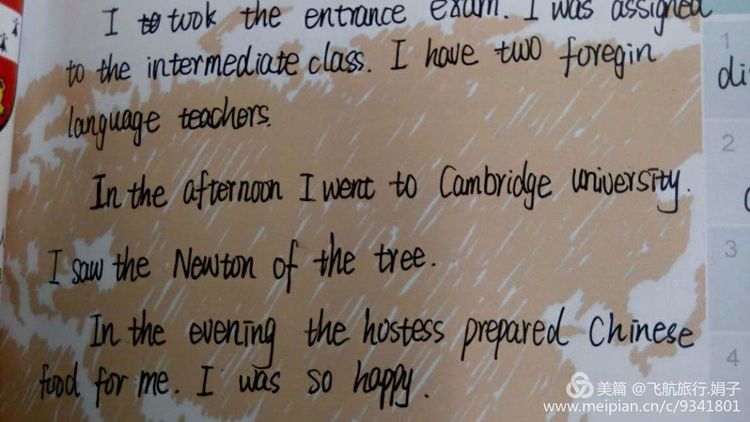 I took the entrance exam. I was assigned
to the intermediate class. I have two foregin
language teachers.
In the afternoon I went to Cambridge university.
I saw the Newton of the tree.
In the evening the hostess prepared Chinese
food for me. I was so happy.
1
di
2
3
4
美篇 @飞航旅行.娟子
www.meipian.cn/c/9341801